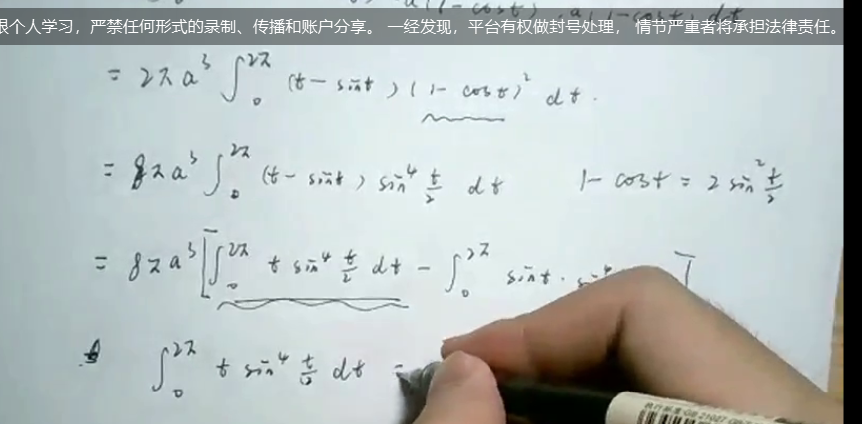 限个人学习，严禁任何形式的录制、传播和账户分享。 一经发现，平台有权做封号处理， 情节严重者将承担法律责任。
= 2πa³ ∫₀^{2π} (t - sint)(1 - cost)² dt.
= 8πa³ ∫₀^{2π} (t - sint) sin⁴ t/2 dt 1 - cost = 2 sin² t/2
= 8πa³ [∫₀^{2π} t sin⁴ t/2 dt - ∫₀^{2π} sint · sin⁴ ]
∫₀^{2π} t sin⁴ t/2 dt =